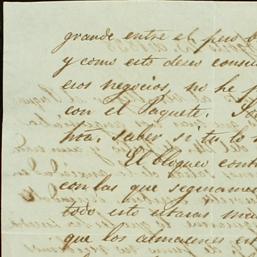 grande entre el peso b
y como esto deseo consu
esos negocios, no he p
con el Paquete.
hora, saber si te
El bloqueo cont
con las que seguramen
todo esto estaras
que los almacenes